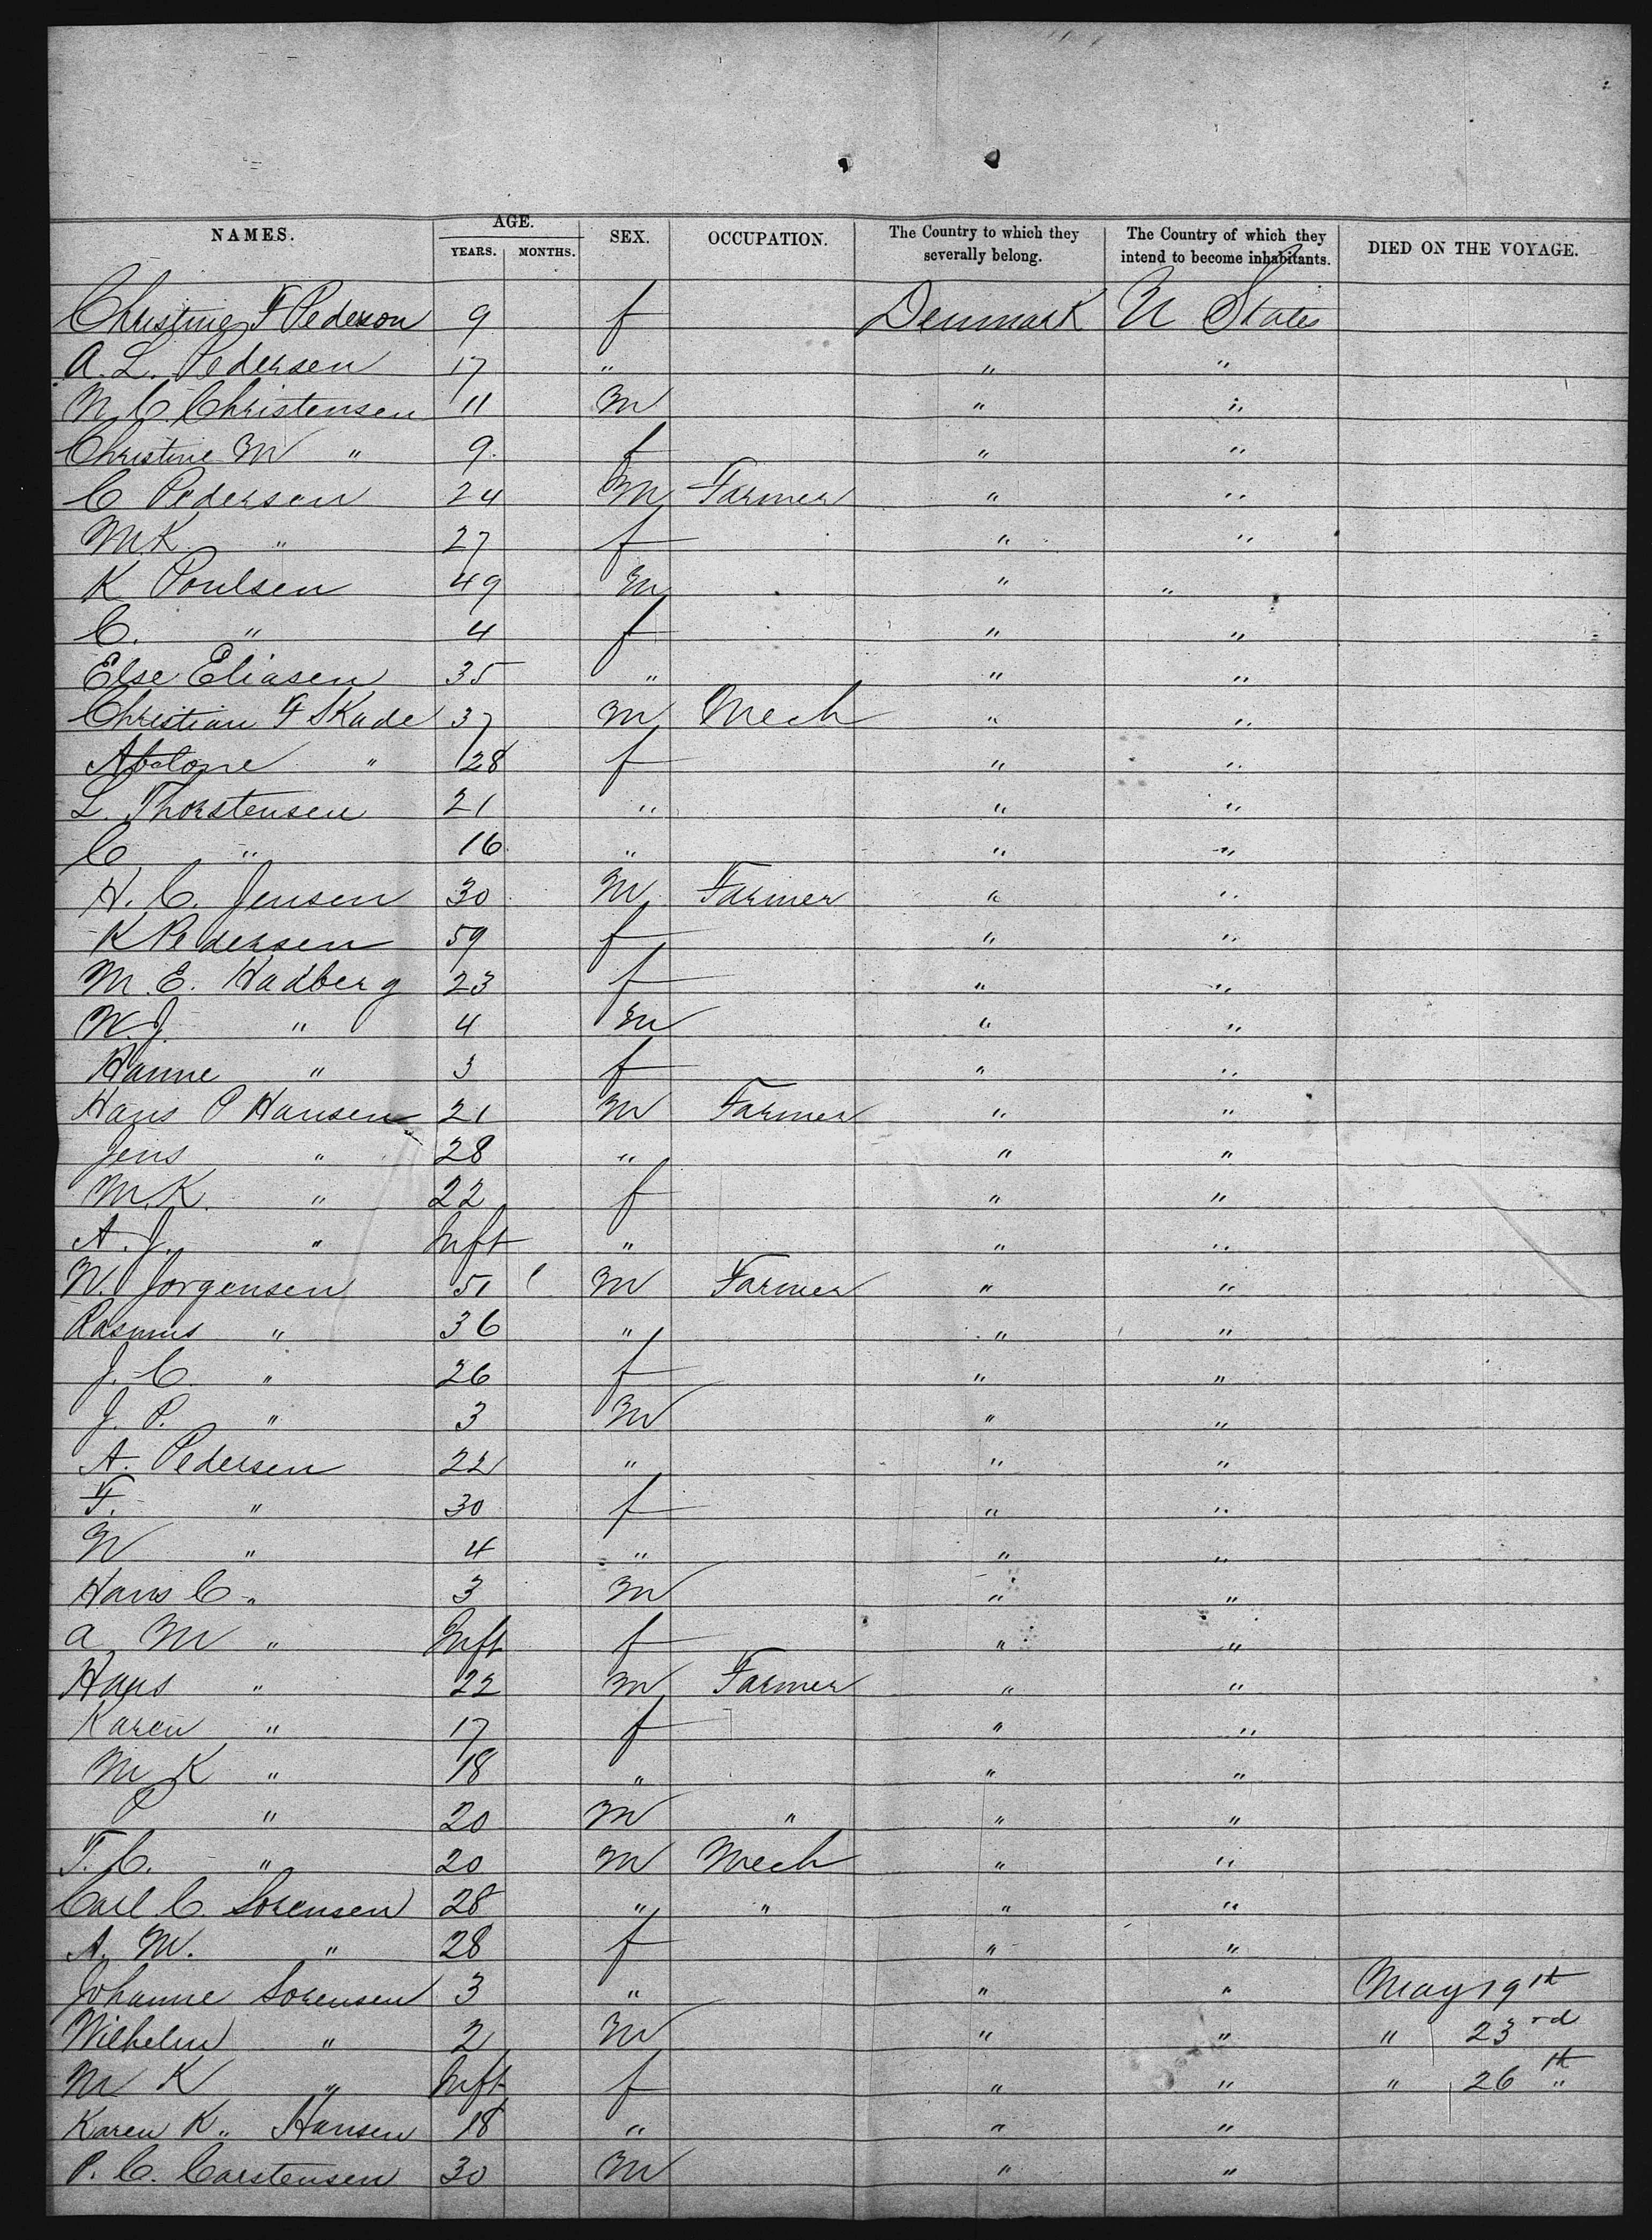 NAMES. AGE. YEARS. MONTHS. SEX. OCCUPATION. The Country to which they severally belong. The Country of which they intend to become inhabitants. DIED ON THE VOYAGE.
Christine F Pederson 9 f Denmark U States
A. L. Pedersen 17 " " "
N. C. Christensen 11 M " "
Christine M " 9 f " "
C Pedersen 24 M Farmer " "
M K " 27 f " "
K Poulsen 49 M " "
C. " 4 f " "
Else Eliasen 35 " " "
Christian F Skade 37 M Mech " "
Abelone " 28 f " "
L. Thorstensen 21 " " "
C " 16 " " "
H. C. Jensen 30 M Farmer " "
K Pedersen 59 f " "
M. E. Hadberg 23 f " "
N. J. " 4 M " "
Hanne " 3 f " "
Hans P Hansen 21 M Farmer " "
Jens " 28 " " "
M. K. " 22 f " "
A. J. " Inft " " "
N. Jorgensen 51 M Farmer " "
Rasmus " 36 " " "
J. C. " 26 f " "
J. P. " 3 M " "
A. Pedersen 22 " " "
F. " 30 f " "
N " 4 " " "
Hans C " 3 M " "
A M " Inft f " "
Hans " 22 M Farmer " "
Karen " 17 f " "
M K " 18 " " "
P " 20 M " " "
T. C. " 20 M Mech " "
Carl C. Sorensen 28 " " " "
A. M. " 28 f " "
Johanne Sorensen 3 " " " May 19th
Wilhelm " 2 M " " " 23rd
M K " Inft f " " " 26th
Karen K. " Hansen 18 " " "
P. C. Carstensen 30 M " "